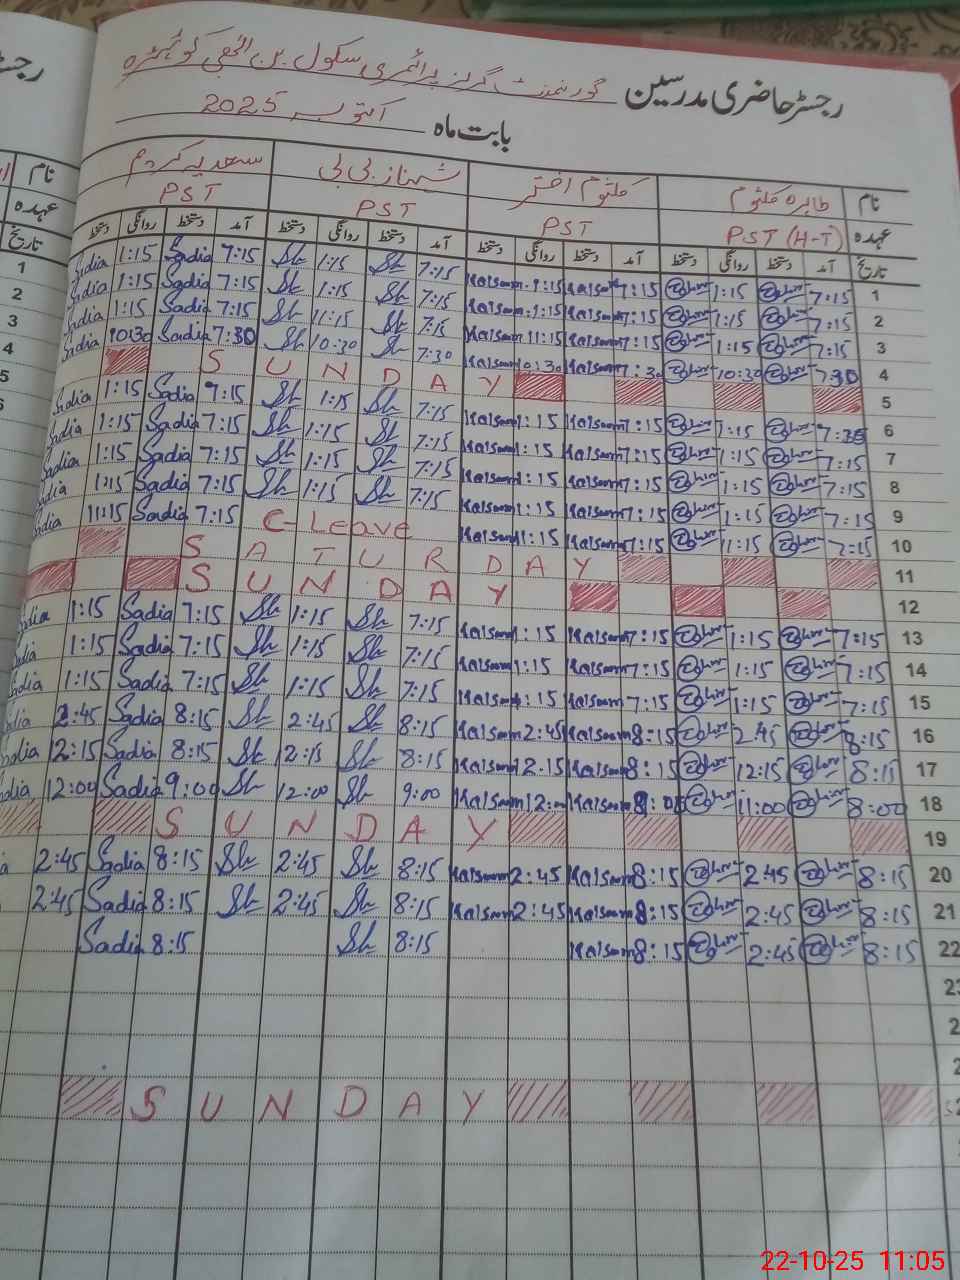 رجسٹر حاضری مدرسین گورنمنٹ گرلز پرائمری سکول
بابت ماہ اکتوبر 2025
نام طاہرہ کلثوم کلثوم اختر شہناز بی بی سعدیہ کریم
عہدہ PST (H-T) PST PST PST
تاریخ آمد دستخط روانگی دستخط آمد دستخط روانگی دستخط آمد دستخط روانگی دستخط آمد دستخط روانگی دستخط
1 7:15 1:15 7:15 Kalsoom 7:15 Sh 1:15 Sh 7:15 Sadia 1:15 Sadia
2 7:15 1:15 7:15 Kalsoom 7:15 Sh 1:15 Sh 7:15 Sadia 1:15 Sadia
3 7:15 1:15 7:15 Kalsoom 11:15 Kalsoom 7:15 Sh 11:15 Sh 7:15 Sadia 1:15 Sadia
4 7:30 10:30 7:30 Kalsoom 10:30 Kalsoom 7:30 Sh 10:30 Sh 7:30 Sadia 1030 Sadia
5 SUNDAY
6 1:15 7:15 Kalsoom 1:15 Kalsoom 7:15 Sh 1:15 Sh Sadia 1:15 Sadia
7 7:15 1:15 7:15 Kalsoom 1:15 Kalsoom 7:15 Sh 1:15 Sh 7:15 Sadia 1:15 Sadia
8 7:15 1:15 7:15 Kalsoom 1:15 Kalsoom 7:15 Sh 1:15 Sh 7:15 Sadia 1:15 Sadia
9 7:15 1:15 7:15 Kalsoom 1:15 Kalsoom 7:15 Sh 1:15 Sh 7:15 Sadia 1:15 Sadia
10 7:15 11:15 7:15 Kalsoom 1:15 Kalsoom C-Leave 7:15 Sadia 11:15 Sadia
11 SATURDAY
12 SUNDAY
13 7:15 1:15 7:15 Kalsoom 1:15 Kalsoom 7:15 Sh 1:15 Sh 7:15 Sadia 1:15
14 7:15 1:15 7:15 Kalsoom 1:15 Kalsoom 7:15 Sh 1:15 Sh 7:15 Sadia 1:15
15 7:15 1:15 7:15 Kalsoom 1:15 Kalsoom 7:15 Sh 1:15 Sh 7:15 Sadia 1:15
16 8:15 2:45 8:15 Kalsoom 2:45 Kalsoom 8:15 Sh 2:45 Sh 8:15 Sadia 2:45
17 8:15 12:15 8:15 Kalsoom 12:15 Kalsoom 8:15 Sh 12:15 Sh 8:15 Sadia 12:15
18 8:00 11:00 Kalsoom Kalsoom 9:00 Sh 12:00 Sh 9:00 Sadia 12:00
19 SUNDAY
20 8:15 2:45 8:15 Kalsoom 2:45 Kalsoom 8:15 Sh 2:45 Sh 8:15 Sadia 2:45
21 8:15 2:45 8:15 Kalsoom 2:45 Kalsoom 8:15 Sh 2:45 Sh 8:15 Sadia 2:45
22 8:15 2:45 8:15 Kalsoom 8:15 Sh 8:15 Sadia
SUNDAY
22-10-25 11:05